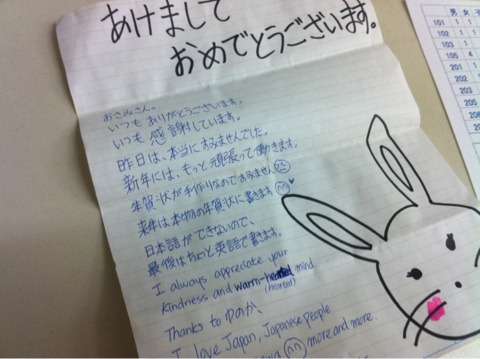 あけまして
おめでとうございます。
おさみさん。
いつもありがとうございます。
いつも感謝しています。
昨日は、本当にすみませんでした。
新年には、もっと頑張って働きます。
年賀状が手作りなのですみません
来年は本物の年賀状に書きます
日本語ができないので、
最後はちょっと英語で書きます。
I always appreciate your
kindness and warm-hearted mind.
(hearted)
Thanks to ゆのか,
I love Japan, Japanese people
more and more.
男 女
101
102
103
105
201
202
203
205